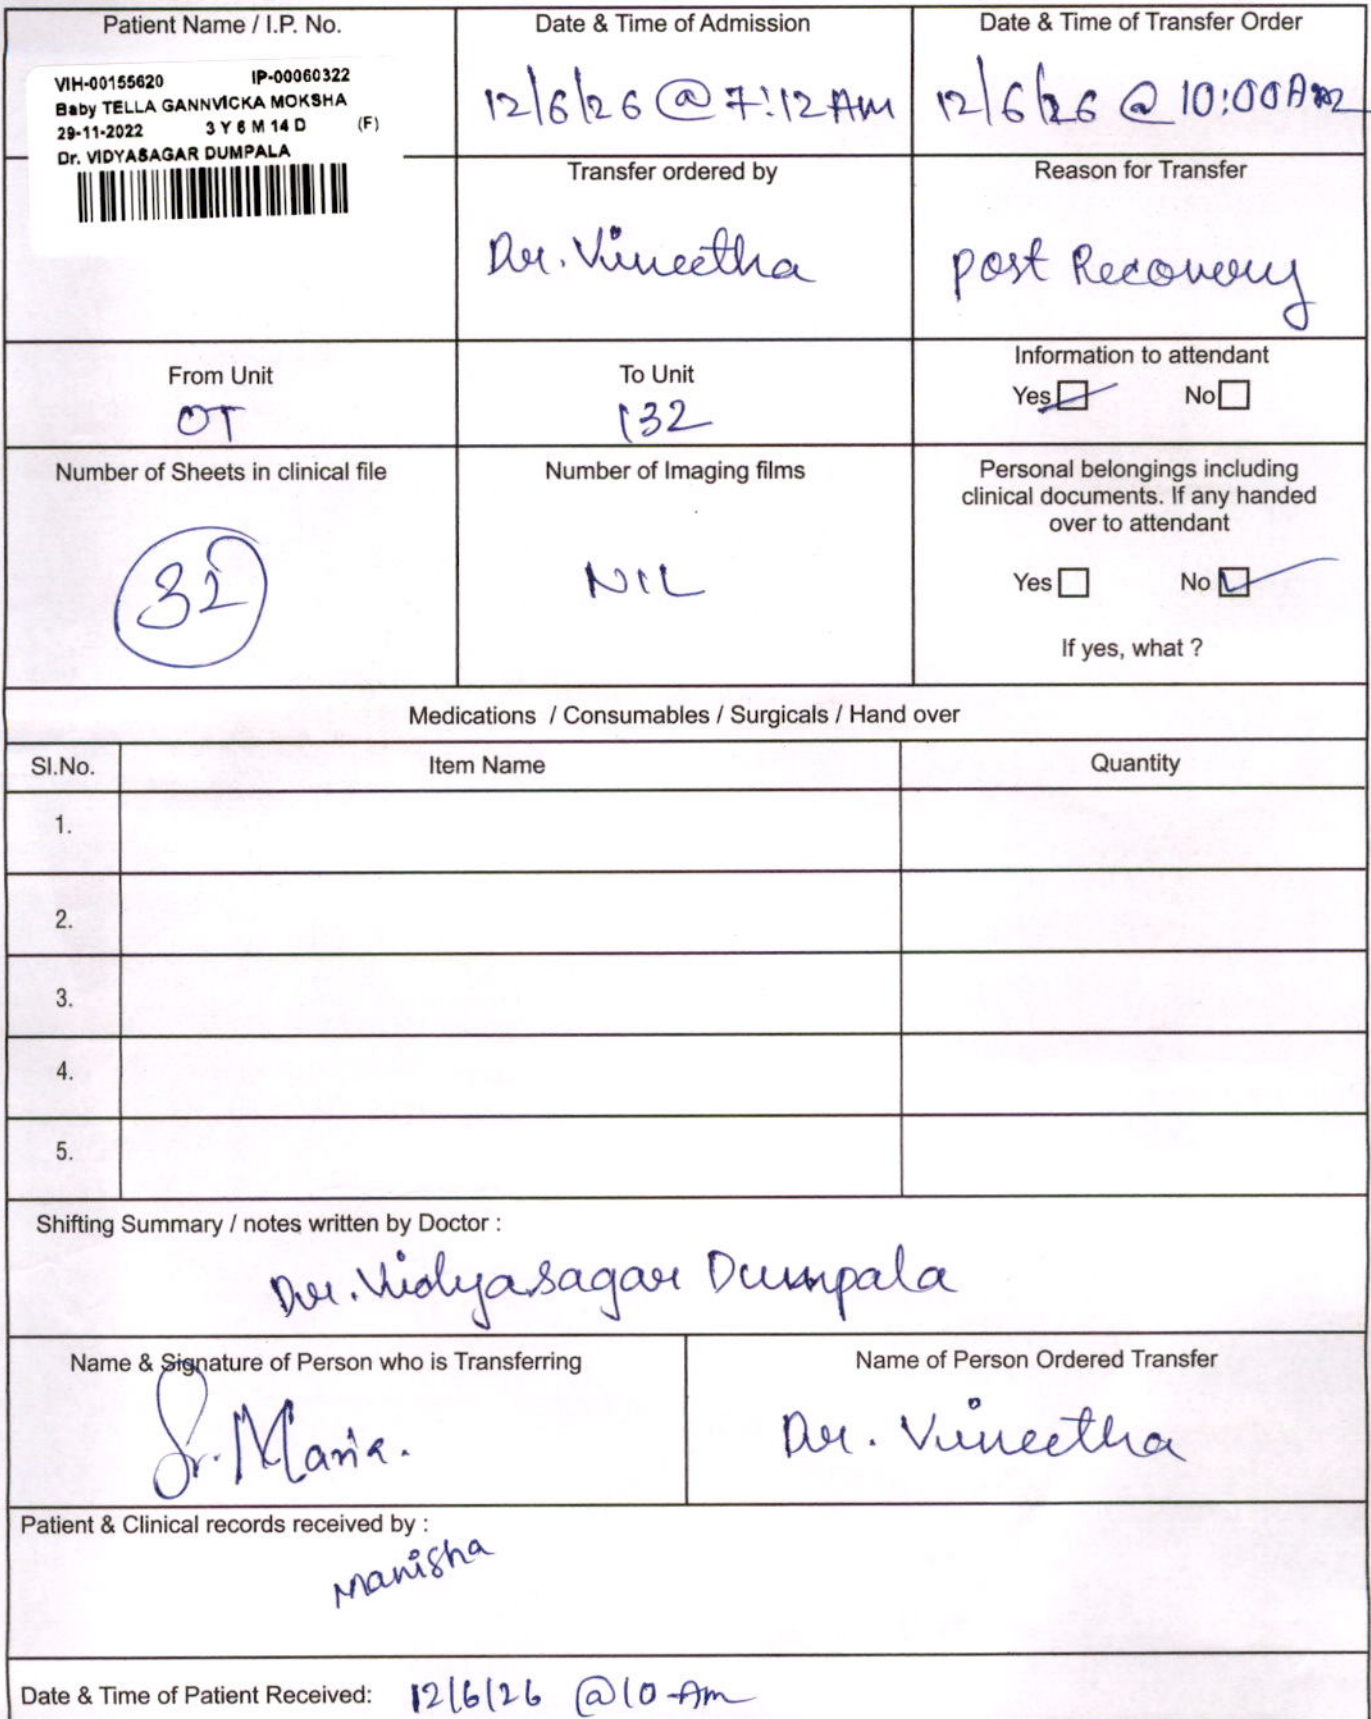 Patient Name / I.P. No.
VIH-00155620 IP-00060322
Baby TELLA GANNVICKA MOKSHA
29-11-2022 3 Y 6 M 14 D (F)
Dr. VIDYASAGAR DUMPALA
Date & Time of Admission
12/6/26 @ 7:12 Am
Date & Time of Transfer Order
12/6/26 @ 10:00 Am
Transfer ordered by
Dr. Vineetha
Reason for Transfer
post Recovery
From Unit
OT
To Unit
132
Information to attendant
Yes No
Number of Sheets in clinical file
32
Number of Imaging films
NIL
Personal belongings including
clinical documents. If any handed
over to attendant
Yes No
If yes, what ?
Medications / Consumables / Surgicals / Hand over
Sl.No. Item Name Quantity
1.
2.
3.
4.
5.
Shifting Summary / notes written by Doctor :
Dr. Vidyasagar Dumpala
Name & Signature of Person who is Transferring
Sr. Maria.
Name of Person Ordered Transfer
Dr. Vineetha
Patient & Clinical records received by :
Manisha
Date & Time of Patient Received: 12/6/26 @10-Am